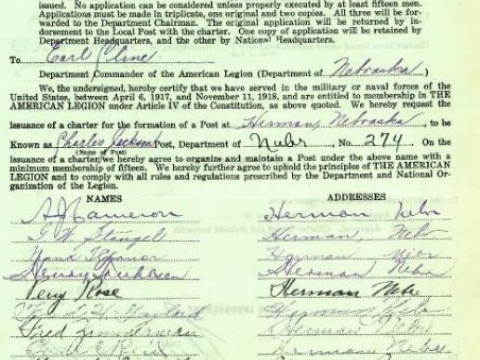 issued. No application can be considered unless properly executed by at least fifteen men.
Applications must be made in triplicate, one original and two copies. All three will be for-
warded to the Department Chairman. The original application will be returned by in-
dorsement to the Local Post with the charter. One copy of application will be retained by
Department Headquarters, and the other by National Headquarters.
To Earl Cline
Department Commander of the American Legion (Department of Nebraska)
We, the undersigned, hereby certify that we have served in the military or naval forces of the
United States, between April 6, 1917, and November 11, 1918, and are entitled to membership in THE
AMERICAN LEGION under Article IV of the Constitution, as above quoted. We hereby request
issuance of a charter for the formation of a Post at Herman, Nebraska, to be
Known as Charles Jackson Post, Department of Nebr, No. 274 On the
Name of Post
issuance of a charter, we hereby agree to organize and maintain a Post under the above name with a
minimum membership of fifteen. We hereby further agree to uphold the principles of THE AMERICAN
LEGION and to comply with all rules and regulations prescribed by the Department and National Or-
ganization of the Legion.
NAMES ADDRESSES
Cameron Herman Nebr
Herman, Nebr
Herman Nebr
Herman Nebr
Rose Herman Nebr
Fred Zimmerman Herman Nebr
Herman Nebr